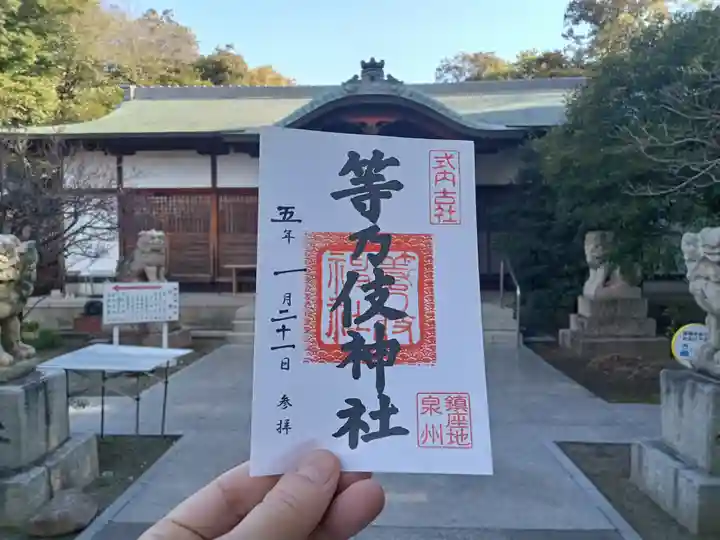 式内古社
等乃伎神社
五年一月二十一日参拝
鎮座地
泉州